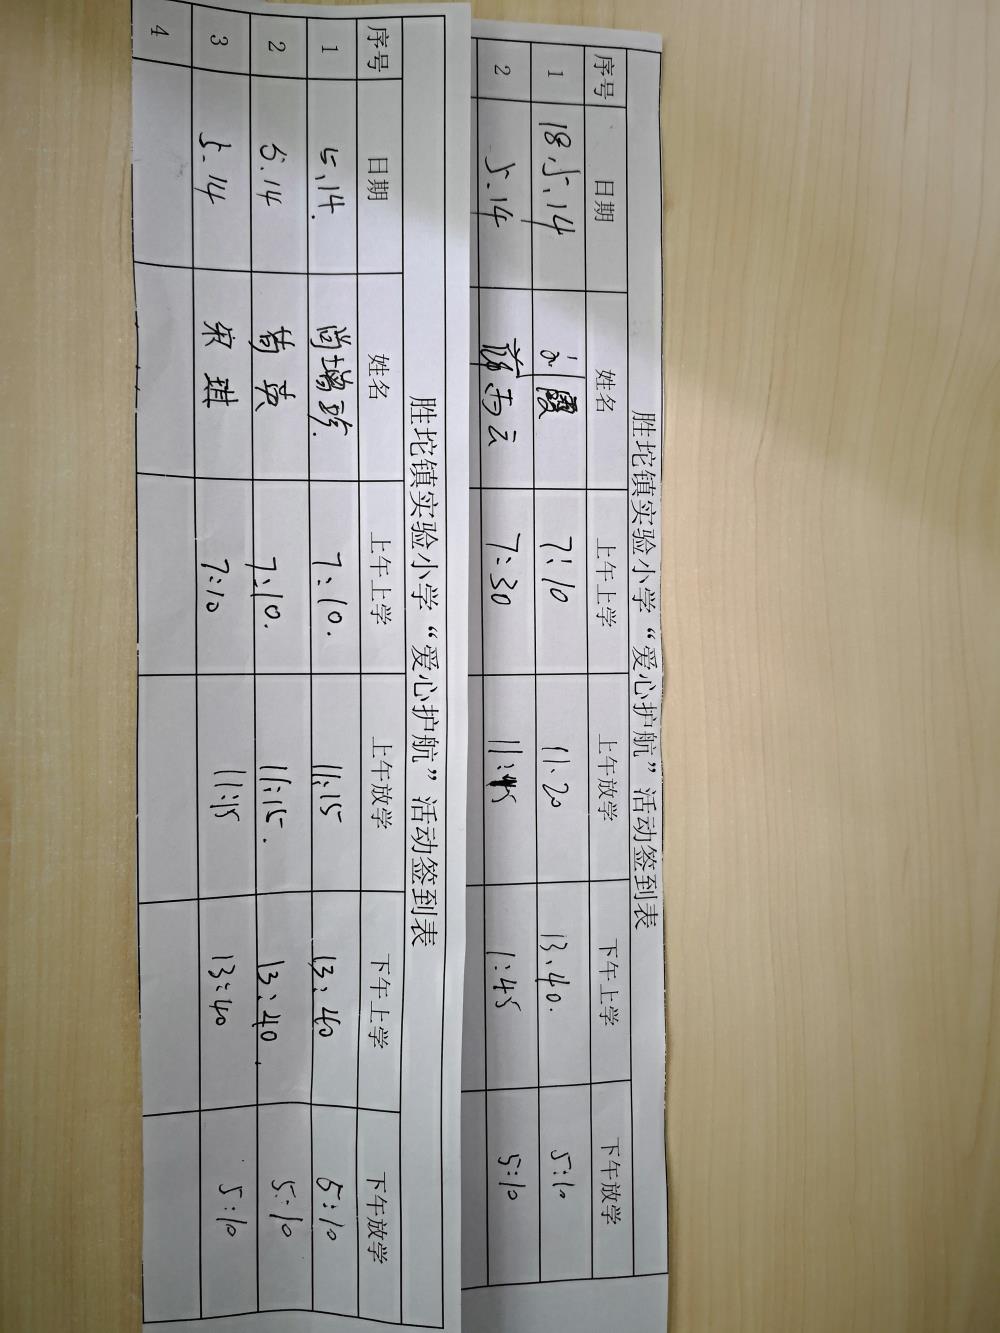 胜坨镇实验小学“爱心护航”活动签到表
序号 日期 姓名 上午上学 上午放学 下午上学 下午放学
1 18.5.14 刘霞 7:10 11:20 13:40. 5:10
2 5.14 西云 7:30 11:45 1:45 5:10
胜坨镇实验小学“爱心护航”活动签到表
序号 日期 姓名 上午上学 上午放学 下午上学 下午放学
1 5.14. 尚增珍. 7:10. 11:15 13:40 5:10
2 5.14 英 7:10. 11:15. 13:40. 5:10
3 5.14 宋琪 7:10 11:15 13:40 5:10
4